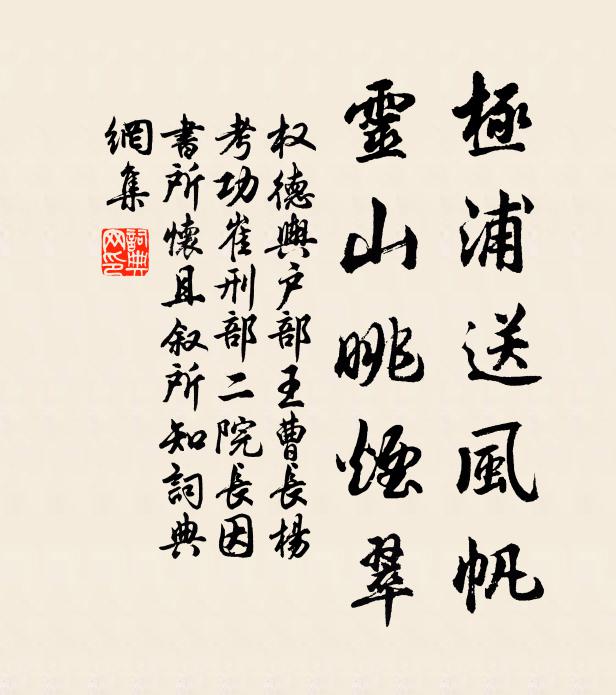 極浦送風帆
靈山眺煙翠
权德輿户部王曹長楊
考功崔刑部二院長因
書所懷且叙所知词典
網集
詞典
网印